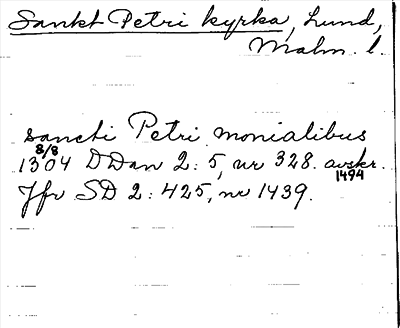 Sankt Petri kyrka, Lund,
Malm. l.
sancti Petri monialibus
8/8
1304 DDan 2:5, nr 328. avskr.
1494
Jfr SD 2:425, nr 1439.